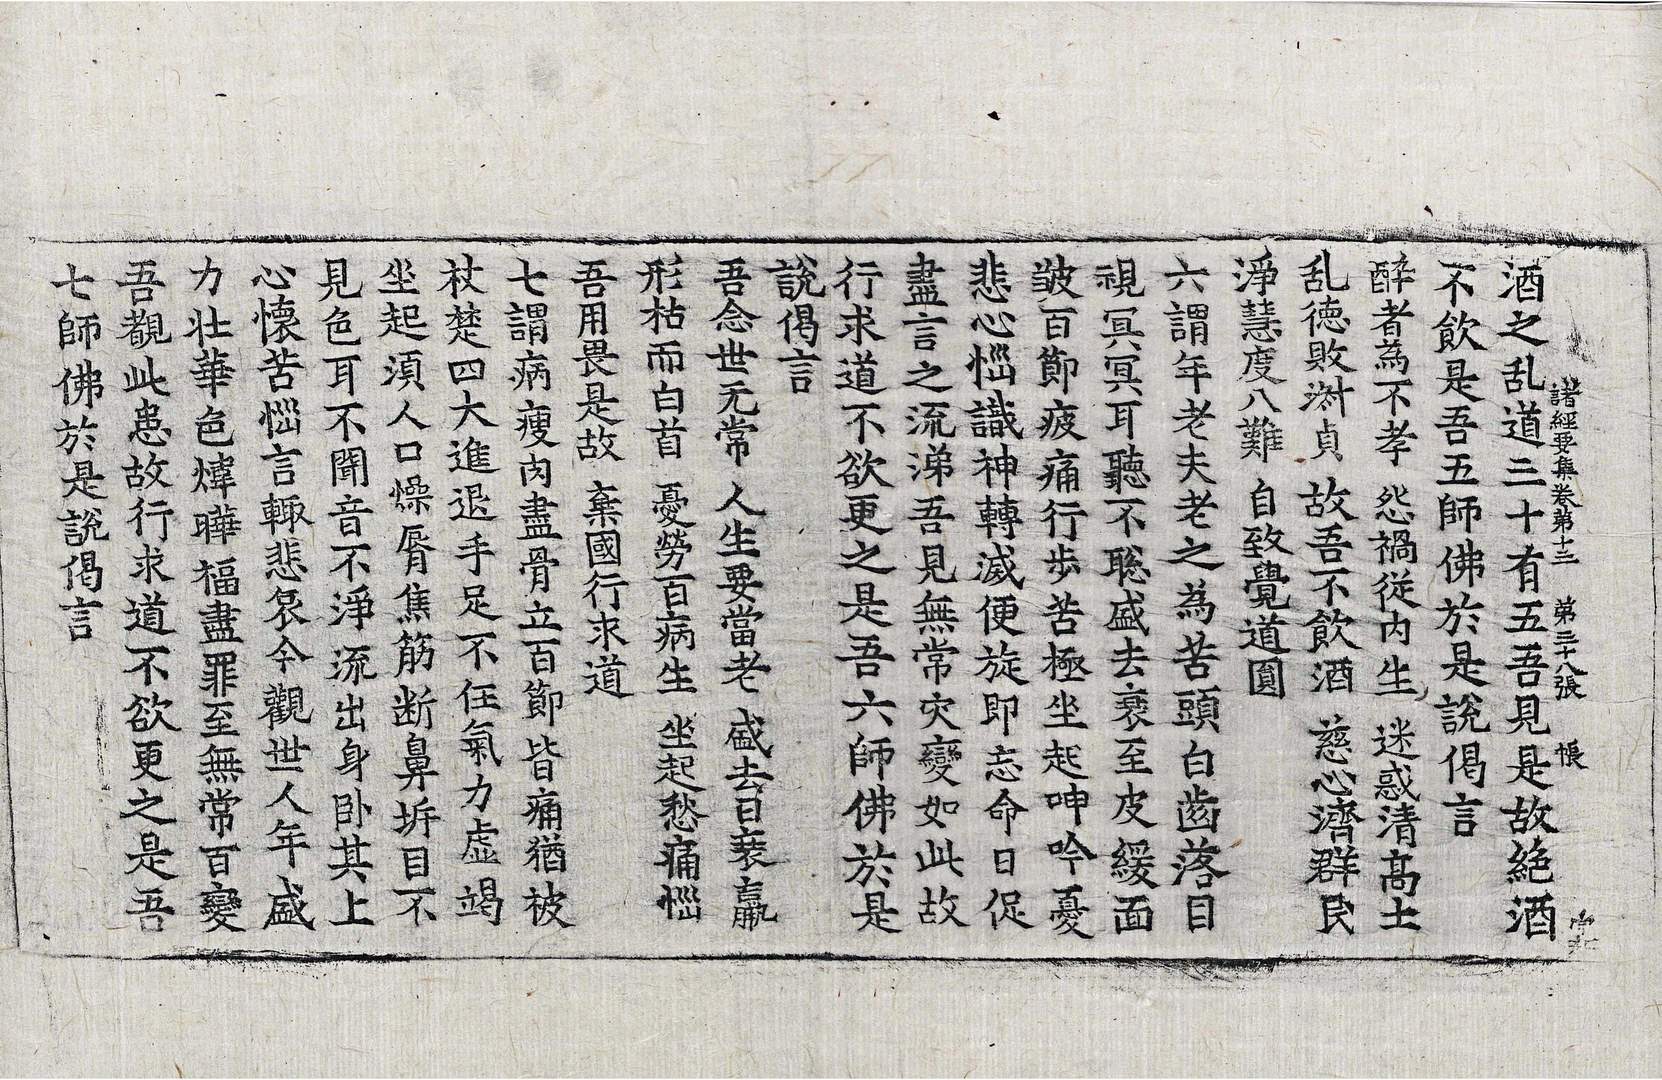 酒之乱道三十有五吾見是故絶酒
諸經要集卷第十三 第三十八張 帳
不飲是吾五師佛於是說偈言
醉者為不孝 怨禍從内生 迷惑清高士
乱德敗淋貞 故吾不飲酒 慈心濟群民
淨慧度八難 自致覺道圓
六謂年老夫老之為苦頭白齒落目
視冥冥耳聽不聡盛去衰至皮緩面
皺百節疲痛行步苦極坐起呻吟憂
悲心惱識神轉滅便旋即忘命日促
盡言之流涕吾見無常灾變如此故
行求道不欲更之是吾六師佛於是
說偈言
吾念世无常 人生要當老 盛去日衰羸
形枯而白首 憂勞百病生 坐起愁痛惱
吾用畏是故 棄國行求道
七謂病瘦肉盡骨立百節皆痛猶被
杖楚四大進退手足不任氣力虛竭
坐起湏人口燥脣焦筋断鼻坼目不
見色耳不聞音不淨流出身卧其上
心懷苦惱言輙悲哀今觀世人年盛
力壯華色煒曄福盡罪至無常百變
吾覩此患故行求道不欲更之是吾
七師佛於是說偈言